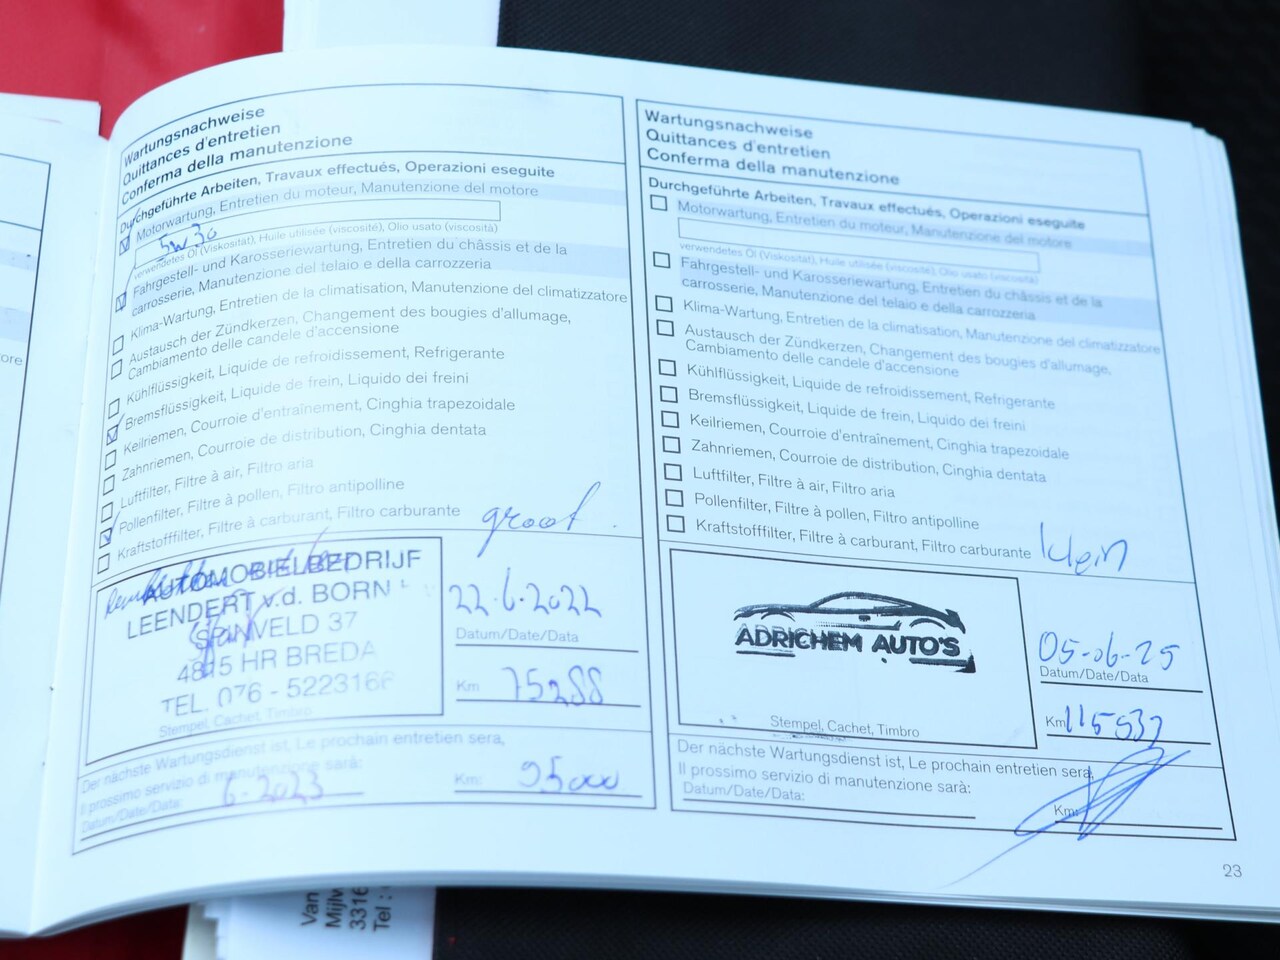 Wartungsnachweise
Quittances d'entretien
Conferma della manutenzione
Durchgeführte Arbeiten, Travaux effectués, Operazioni eseguite
Motorwartung, Entretien du moteur, Manutenzione del motore
5W30
verwendetes Öl (Viskosität), Huile utilisée (viscosité), Olio usato (viscosità)
Fahrgestell- und Karosseriewartung, Entretien du châssis et de la
carrosserie, Manutenzione del telaio e della carrozzeria
Klima-Wartung, Entretien de la climatisation, Manutenzione del climatizzatore
Austausch der Zündkerzen, Changement des bougies d'allumage,
Cambiamento delle candele d'accensione
Kühlflüssigkeit, Liquide de refroidissement, Refrigerante
Bremsflüssigkeit, Liquide de frein, Liquido dei freini
Keilriemen, Courroie d'entraînement, Cinghia trapezoidale
Zahnriemen, Courroie de distribution, Cinghia dentata
Luftfilter, Filtre à air, Filtro aria
Pollenfilter, Filtre à pollen, Filtro antipolline
Kraftstofffilter, Filtre à carburant, Filtro carburante
groot
AUTOMOBIELBEDRIJF
LEENDERT v.d. BORN
SPINVELD 37
4815 HR BREDA
TEL. 076 - 5223166
Stempel, Cachet, Timbro
22-6-2022
Datum/Date/Data
Km 75288
Der nächste Wartungsdienst ist, Le prochain entretien sera,
Il prossimo servizio di manutenzione sarà:
Datum/Date/Data: 6-2023
Km: 95000
Wartungsnachweise
Quittances d'entretien
Conferma della manutenzione
Durchgeführte Arbeiten, Travaux effectués, Operazioni eseguite
Motorwartung, Entretien du moteur, Manutenzione del motore
verwendetes Öl (Viskosität), Huile utilisée (viscosité), Olio usato (viscosità)
Fahrgestell- und Karosseriewartung, Entretien du châssis et de la
carrosserie, Manutenzione del telaio e della carrozzeria
Klima-Wartung, Entretien de la climatisation, Manutenzione del climatizzatore
Austausch der Zündkerzen, Changement des bougies d'allumage,
Cambiamento delle candele d'accensione
Kühlflüssigkeit, Liquide de refroidissement, Refrigerante
Bremsflüssigkeit, Liquide de frein, Liquido dei freini
Keilriemen, Courroie d'entraînement, Cinghia trapezoidale
Zahnriemen, Courroie de distribution, Cinghia dentata
Luftfilter, Filtre à air, Filtro aria
Pollenfilter, Filtre à pollen, Filtro antipolline
Kraftstofffilter, Filtre à carburant, Filtro carburante
klein
ADRICHEM AUTO'S
Stempel, Cachet, Timbro
05-06-25
Datum/Date/Data
Km 115532
Der nächste Wartungsdienst ist, Le prochain entretien sera,
Il prossimo servizio di manutenzione sarà:
Datum/Date/Data:
Km:
23
ore
Van
Mijlw
3316
Tel :